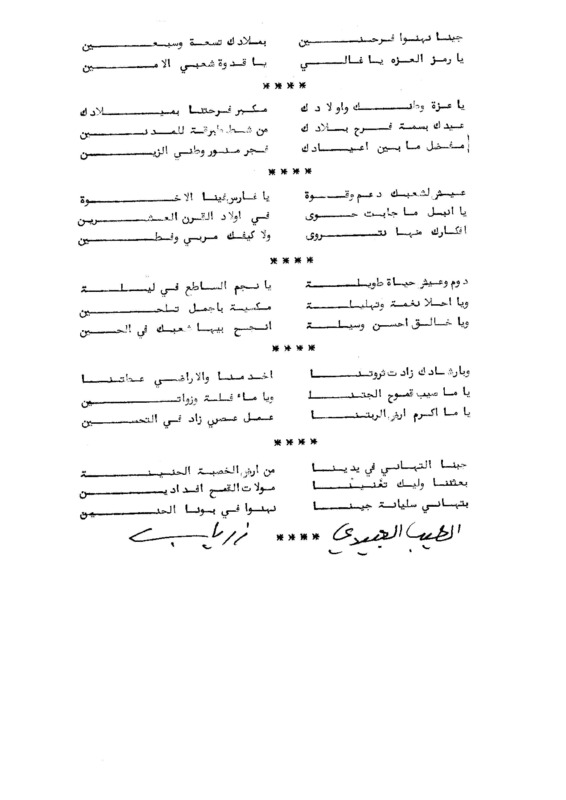 جينا نهنوا فرحنين بميلادك تسعة وسبعين
يا رمز العزه يا غالي يا قدوة شعبي الامين
****
يا عزة وطنك واولادك مكبر فرحتنا بميلادك
عيدك بسمة فرح بلادك من شط طبرقة للمدنين
مفضل ما بين اعيادك فجر منور وطني الزين
****
عيش لشعبك دعم وقوة يا فارس فينا الاخوة
يا انبل ما جابت حوى في اولاد القرن العشرين
افكارك منها نتروى ولا كيفك مربي وفطين
****
دوم وعيش حياة طويلة يا نجم الساطع في ليلة
ويا احلا نغمة وتهليلة مكسبة باجمل تلحين
ويا خالق احسن وسيلة انجح بيها شعبك في الحين
****
وبارشادك زادت ثروتنا اخدمنا والاراضي عطاتنا
يا ما صيب قموح انتجنا ويا ماء غلة وزواتين
يا ما اكرم ارض الربتنا عمل عصري زاد في التحسين
****
جبنا التهاني في يدينا من ارض الخصبة الحنينة
بعثتنا وليك تغنينا مولات القمح افدادين
بتهاني سليانة جينا نهنوا في بونا الحنين
الطيب العبيدي **** زرياب